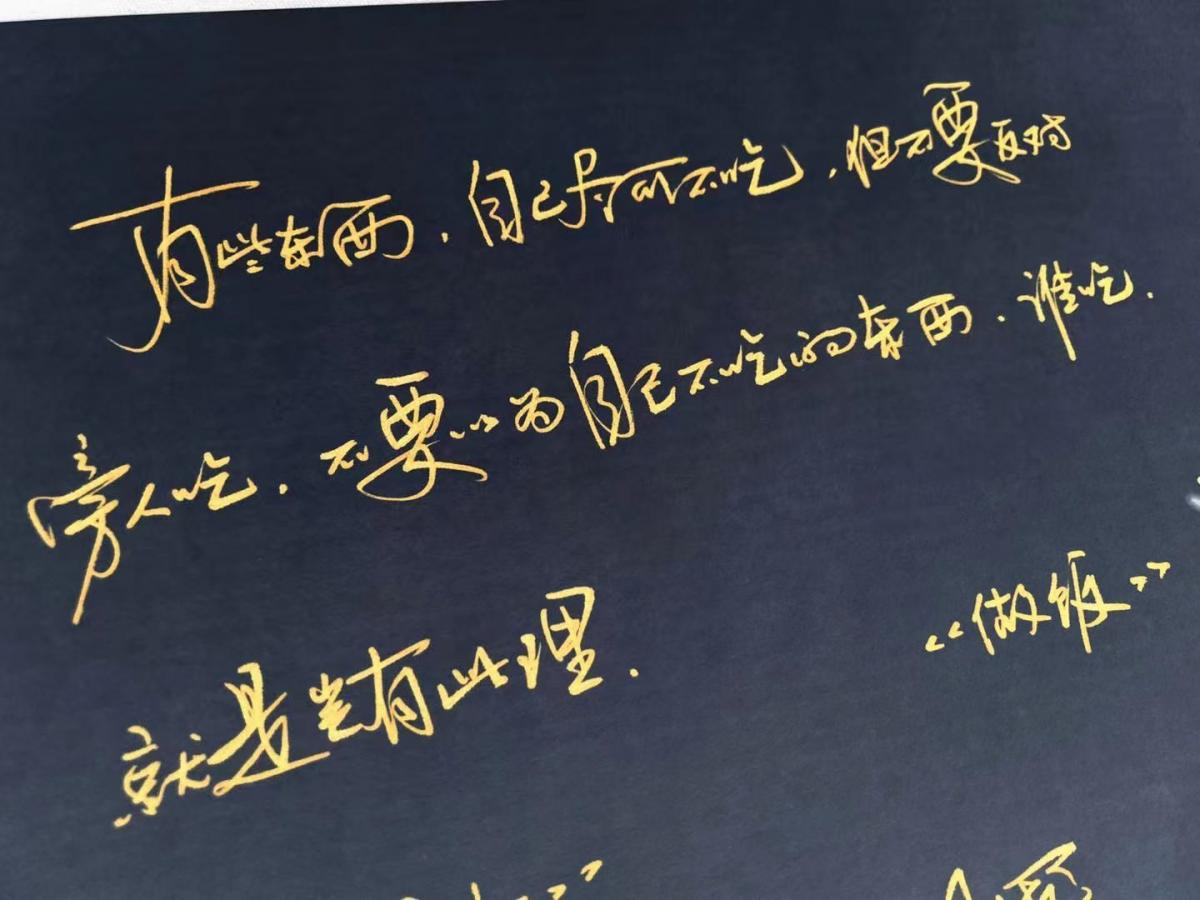 有些东西，自己尽可不吃，但不要反对
旁人吃，不要以为自己不吃的东西，谁吃，
就是岂有此理。
《做饭》